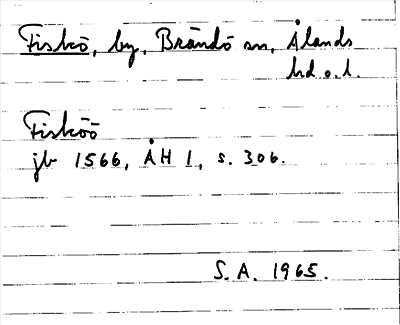 Fiskö, by, Brändö sn, Ålands
hd o. l.
Fisköö
jb 1566, ÅH I, s. 306.
S. A. 1965.